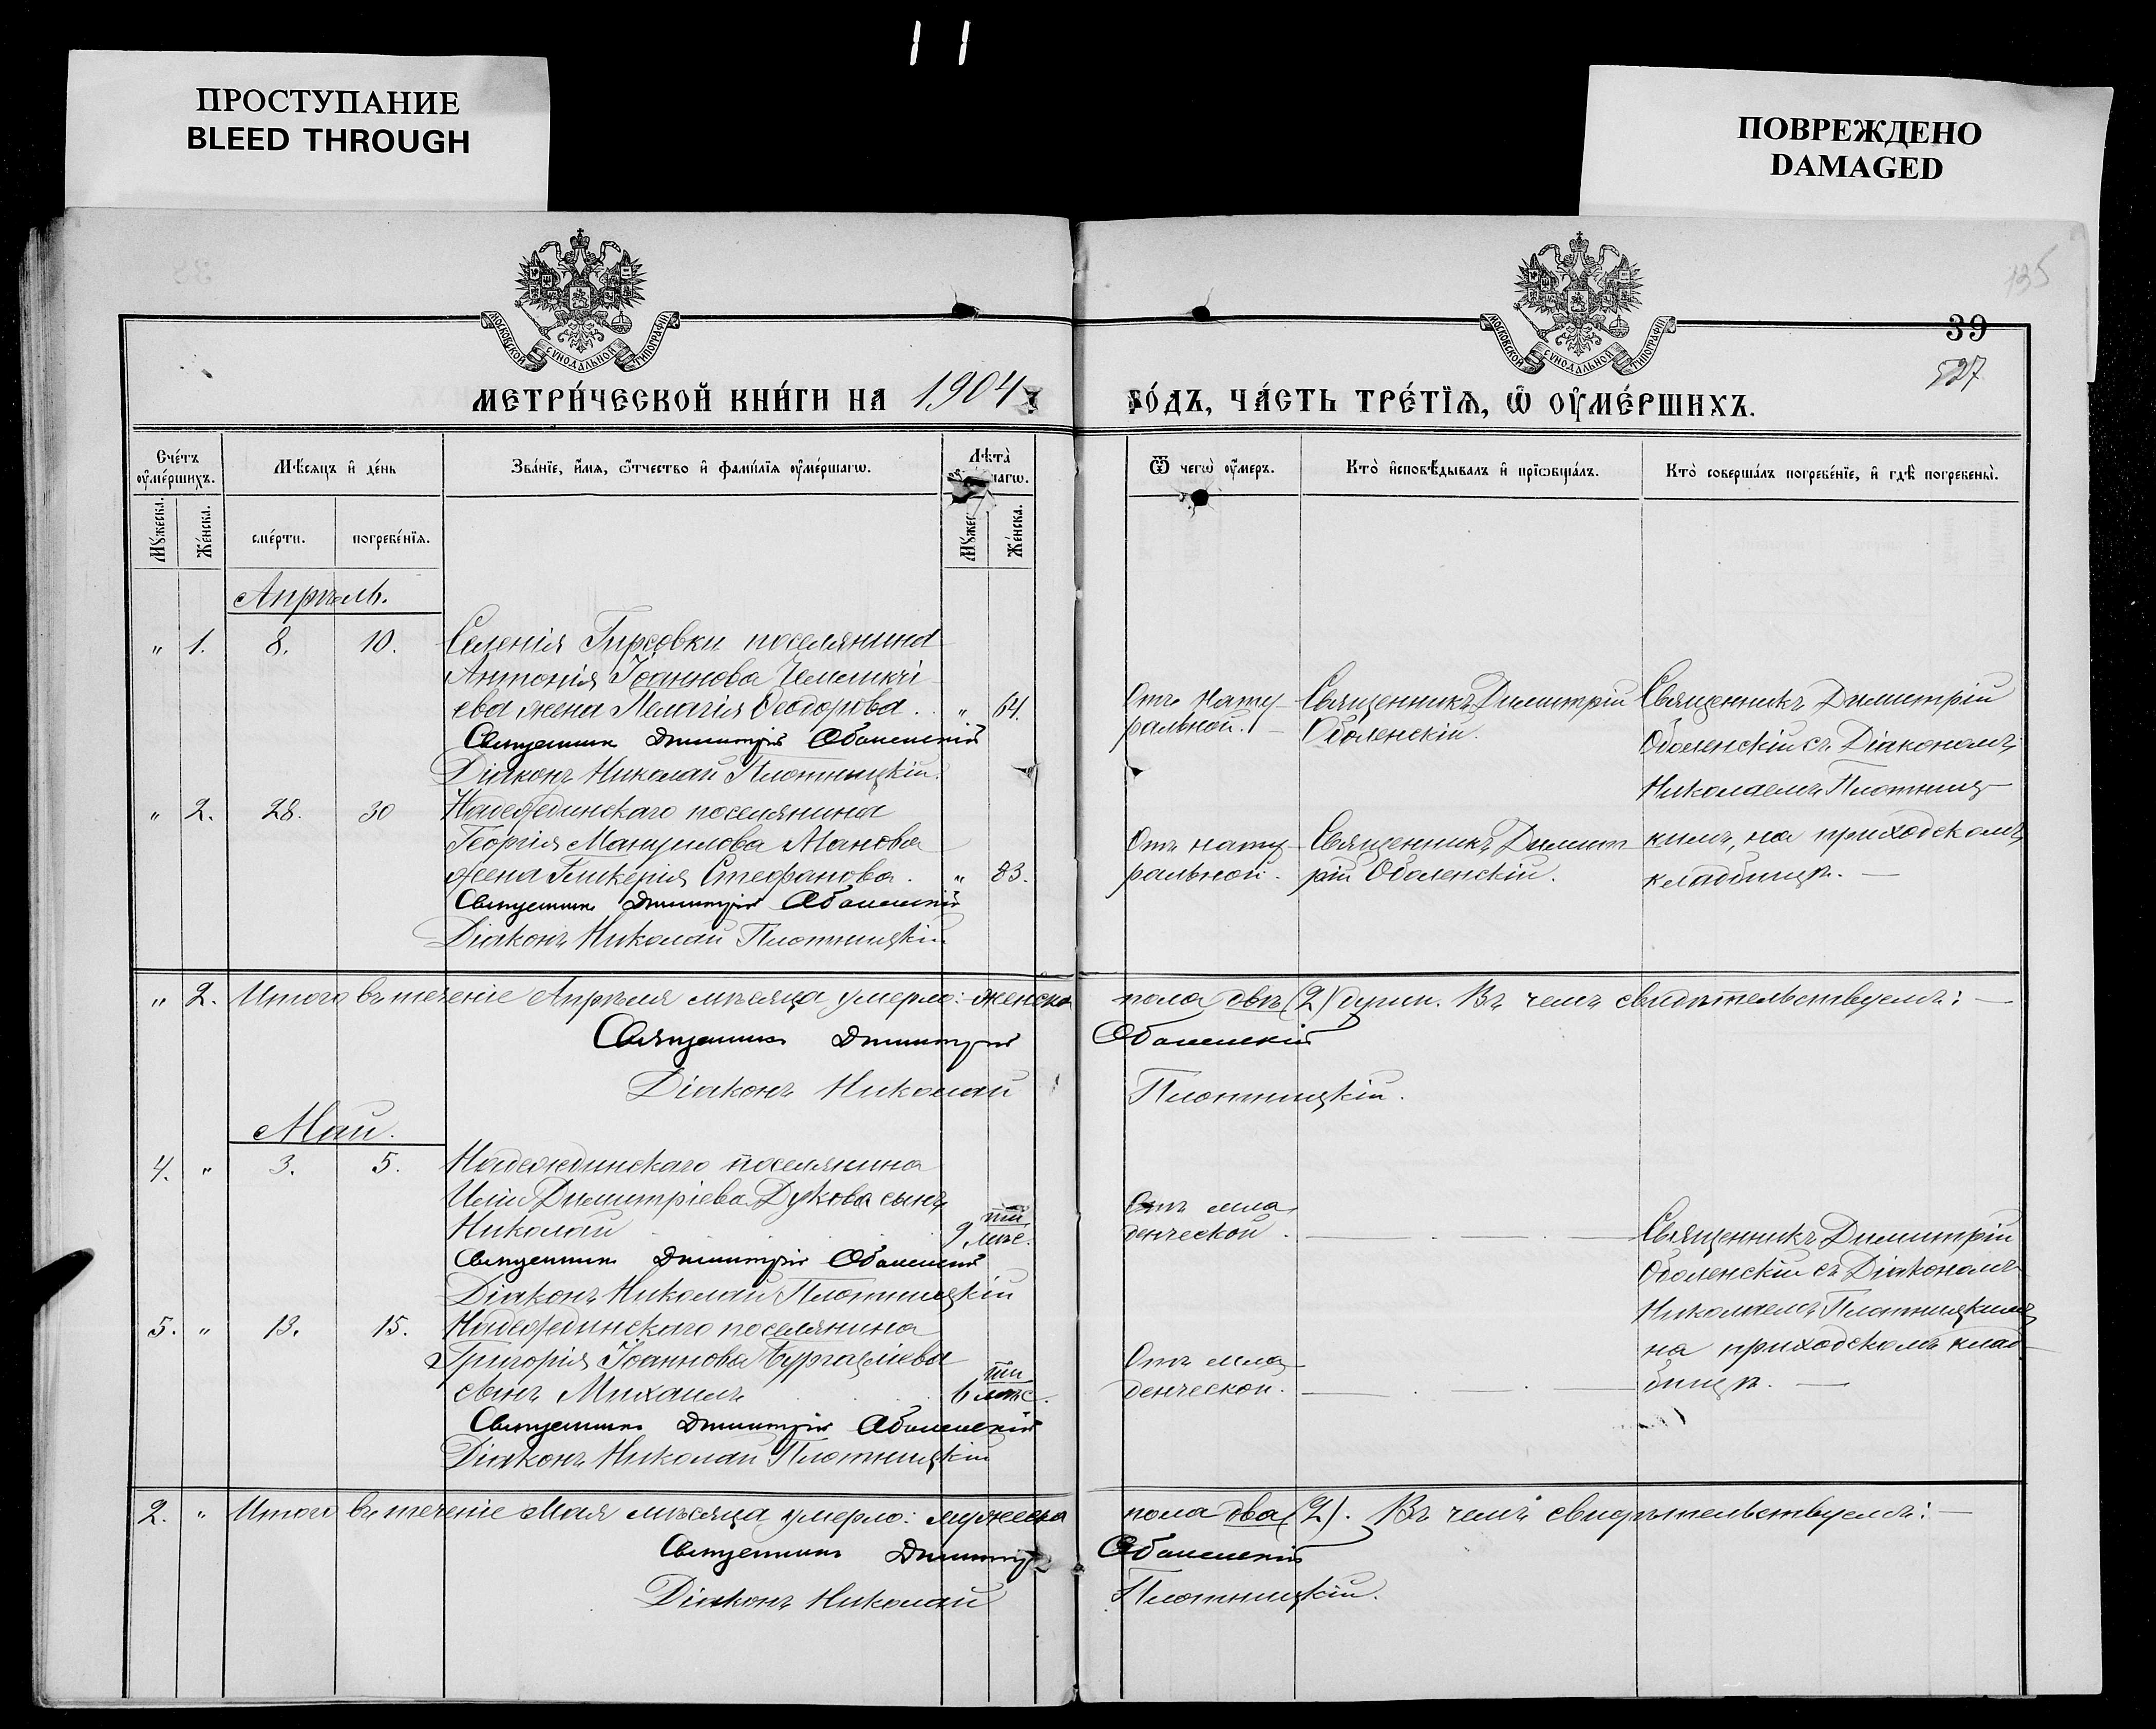 ПРОСТУПАНИЕ
BLEED THROUGH
ПОВРЕЖДЕНО
DAMAGED
135
39
527
МОСКОВСКОЙ СУНОДАЛЬНОЙ ТИПОГРАФІИ
МОСКОВСКОЙ СУНОДАЛЬНОЙ ТИПОГРАФІИ
МЕТРИ́ЧЕСКОЙ КНИ́ГИ НА 1904
ГО́ДЪ, ЧА́СТЬ ТРЕ́ТЇѦ, Ѿ ОУ҆МЕ́РШИХЪ.
Сче́тъ оу҆ме́ршихъ.
Мѣ́сяцъ и҆ де́нь
Зва́нїе, и҆́мя, ѻ҆́тчество и҆ фами́лїя оу҆ме́ршагѡ.
Лѣ́та
Ѿ чегѡ̀ оу҆́меръ.
Кто̀ и҆сповѣ́дывалъ и҆ прїѡбща́лъ.
Кто̀ соверша́лъ погребе́нїе, и҆ гдѣ̀ погребены̀.
Му́жеска.
Же́нска.
сме́рти.
погребе́нїя.
Му́жес
Же́нска.
Апрѣль.
" 1. 8. 10. Селенія Гирсовки поселянина
Антонія Іоаннова
ева жена Пелагія Ѳеодорова. " 64.
Священникъ Димитрій Оболенскій
Діаконъ Николай Плотницкій.
Отъ нату-
ральной.
Священникъ Димитрій
Оболенскій.
Священникъ Димитрій
Оболенскій съ Діакономъ
Николаемъ Плотниц-
кимъ, на приходскомъ
кладбищѣ.
" 2. 28. 30 Надеждинскаго поселянина
Георгія Мануилова Манова
жена Гликерія Стефанова. " 83.
Священникъ Димитрій Оболенскій
Діаконъ Николай Плотницкій
Отъ нату-
ральной.
Священникъ Димит-
рій Оболенскій.
" 2. Итого въ теченіе Апрѣля мѣсяца умерло: женска пола двѣ (2) души. Въ чемъ свидѣтельствуемъ:
Священникъ Димитрій Оболенскій
Діаконъ Николай Плотницкій.
Май.
4. " 3. 5. Надеждинскаго поселянина
Иліи Димитріева Дукова сынъ
Николай 9 ти мѣс.
Священникъ Димитрій Оболенскій
Діаконъ Николай Плотницкій
Отъ мла-
денческой.
Священникъ Димитрій
Оболенскій съ Діакономъ
Николаемъ Плотницкимъ
на приходскомъ клад-
бищѣ.
5. " 13. 15. Надеждинскаго поселянина
Григорія Іоаннова
сынъ Михаилъ 6 ти мѣс.
Священникъ Димитрій Оболенскій
Діаконъ Николай Плотницкій
Отъ мла-
денческой.
2. " Итого въ теченіе Мая мѣсяца умерло: мужеска пола два (2). Въ чемъ свидѣтельствуемъ:
Священникъ Димитрій Оболенскій
Діаконъ Николай Плотницкій.